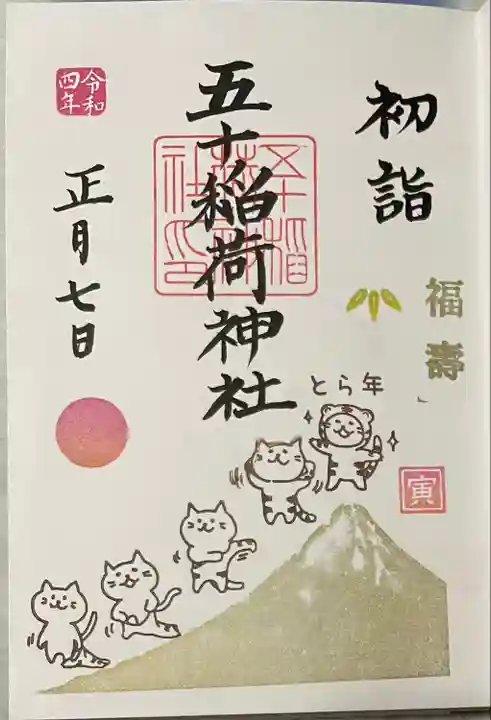 初詣
福壽
とら年
寅
五十稲荷神社
令和
四年
正月七日